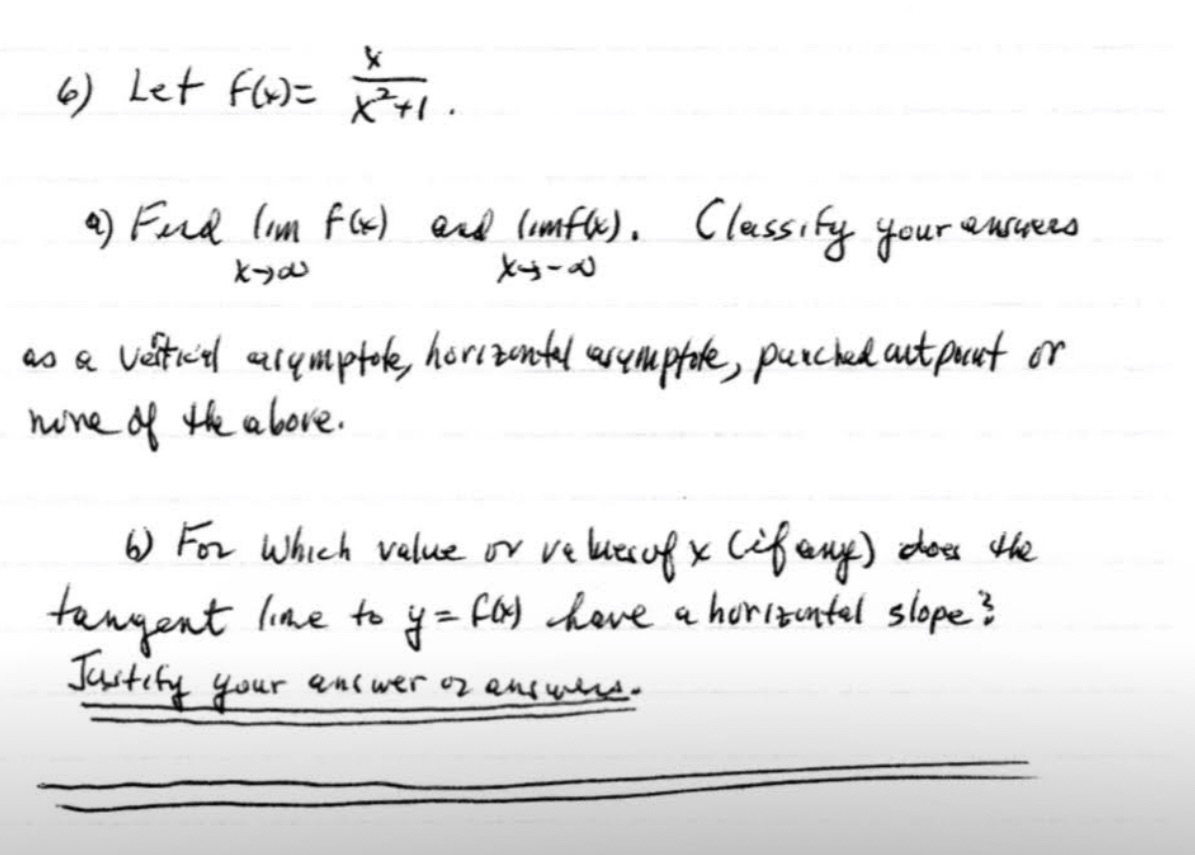 6) Let f(x)= x/(x²+1).
a) Find lim f(x) and lim f(x). Classify your answers
x→∞ x→-∞
as a vertical asymptote, horizontal asymptote, punched out point or
none of the above.
b) For which value or values of x (if any) does the
tangent line to y=f(x) have a horizontal slope?
Justify your answer or answers.